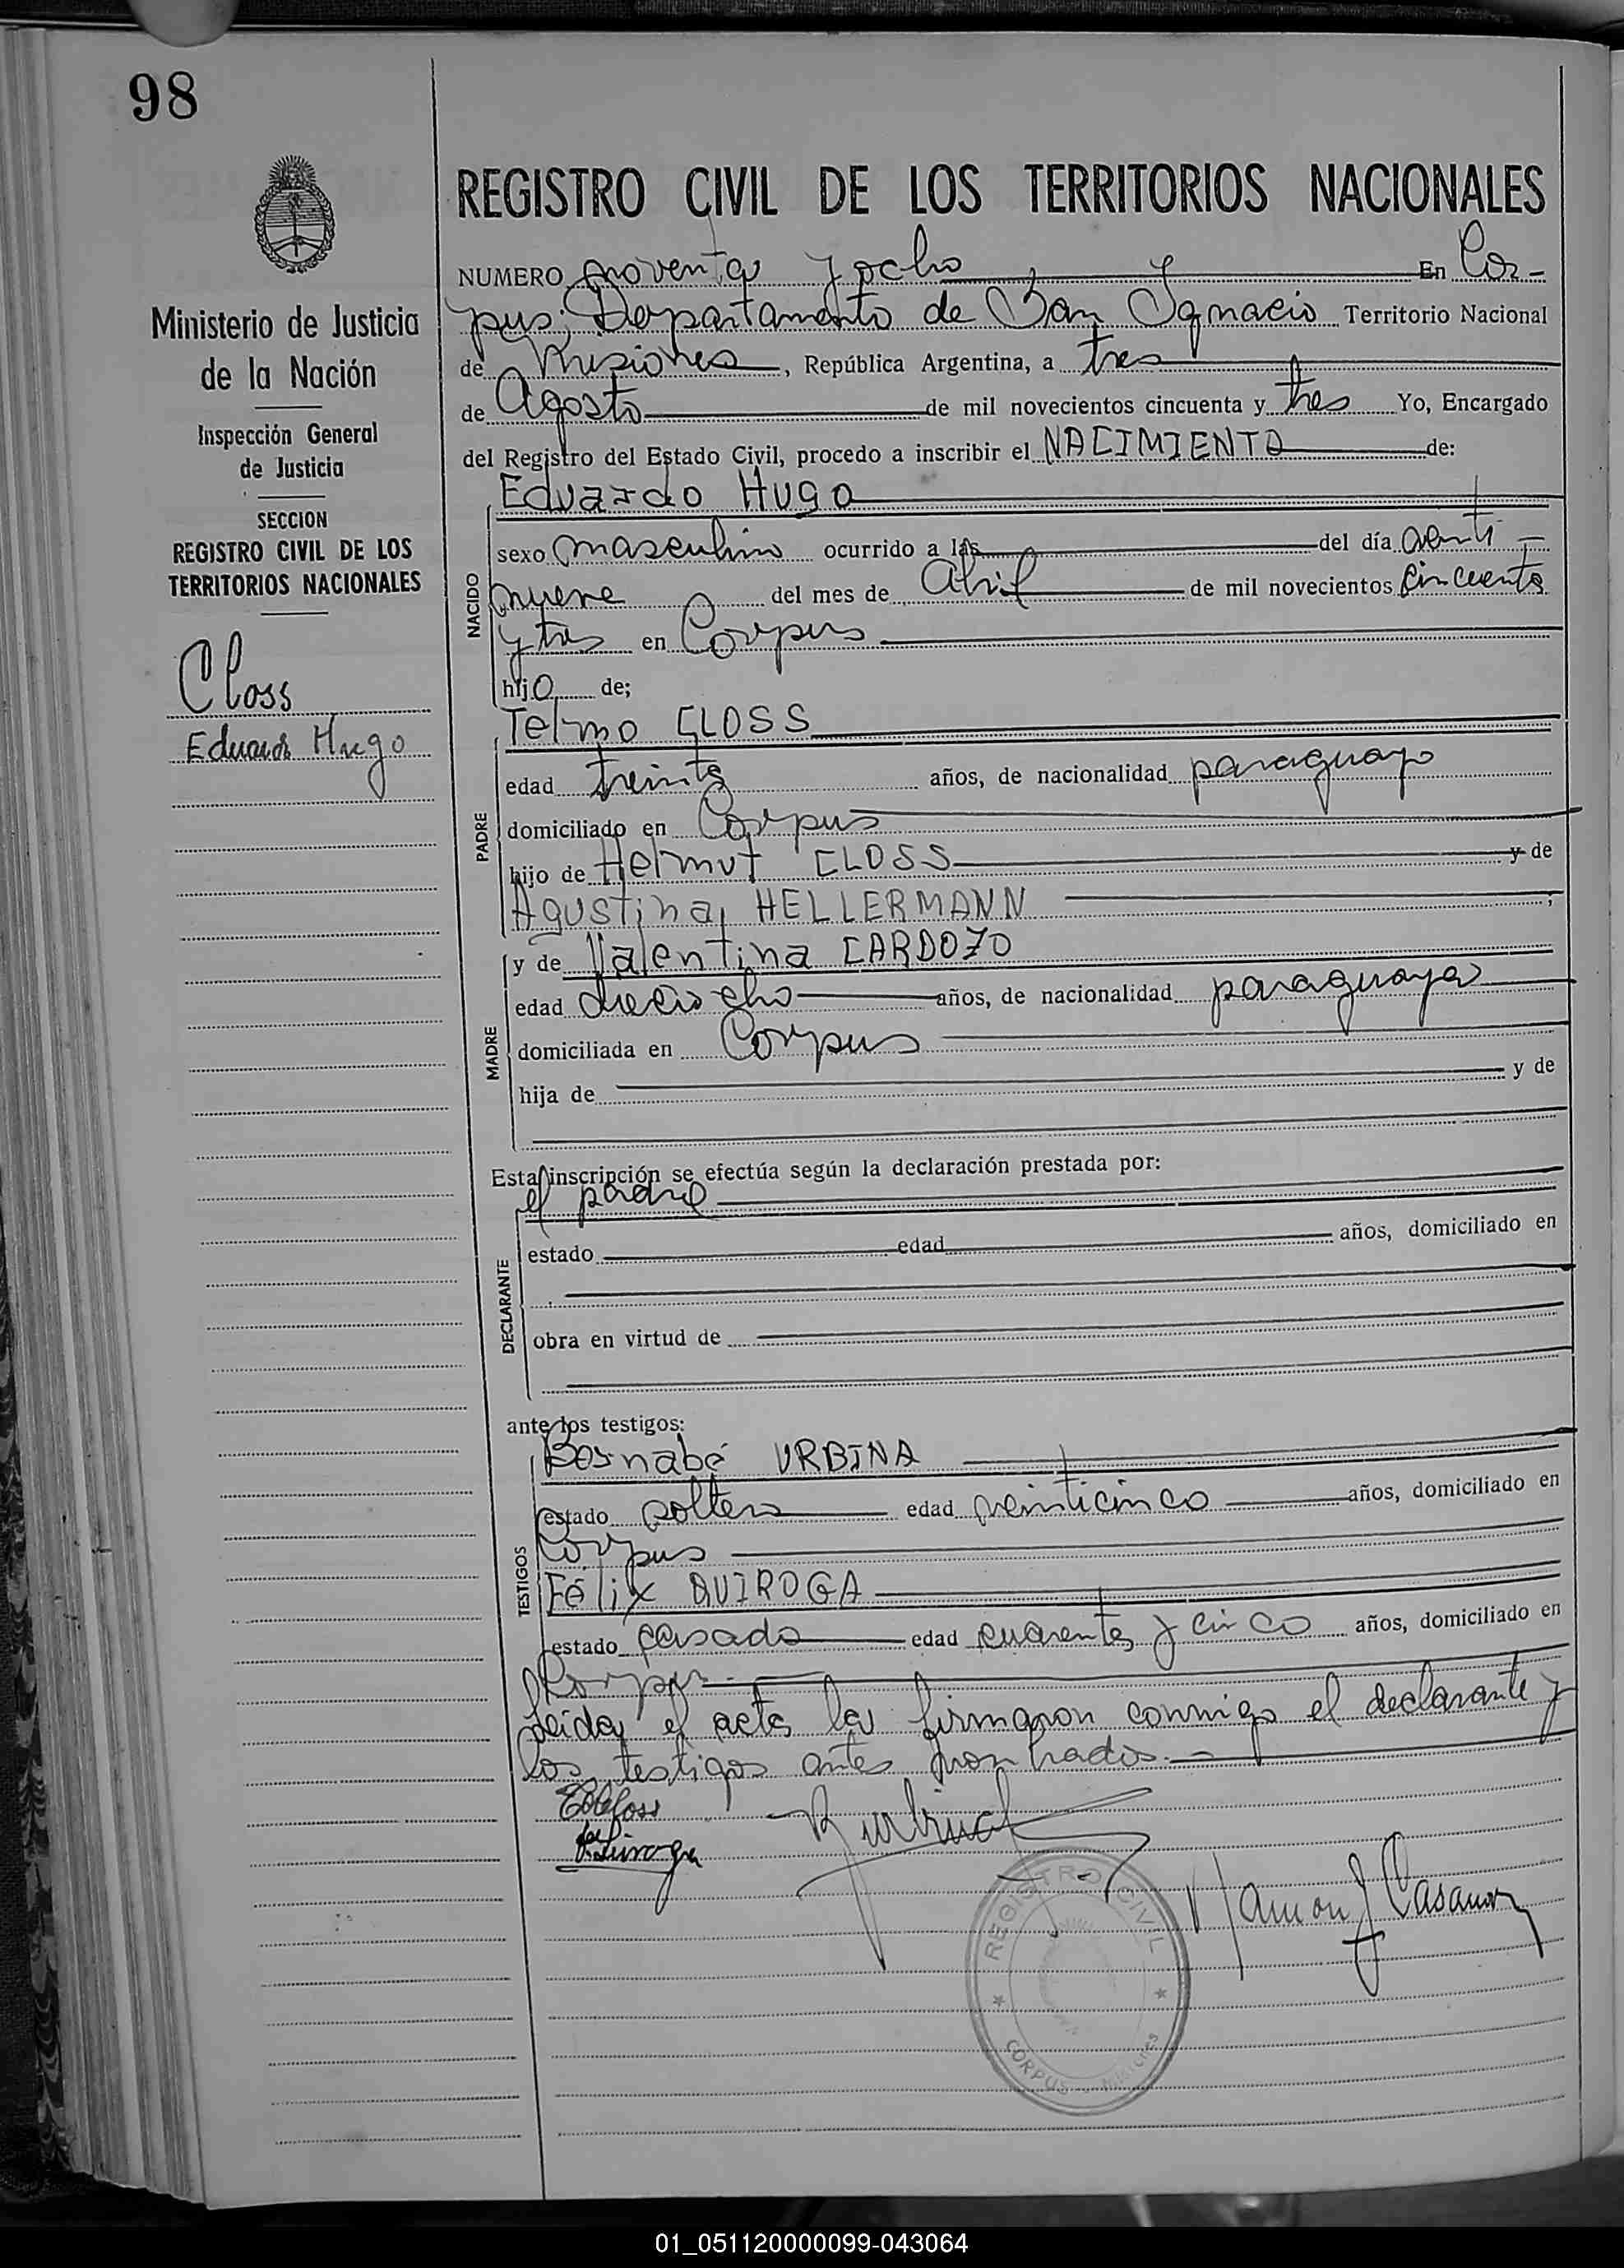 98
Ministerio de Justicia
de la Nación
Inspección General
de Justicia
SECCION
REGISTRO CIVIL DE LOS
TERRITORIOS NACIONALES
Closs
Eduardo Hugo
REGISTRO CIVIL DE LOS TERRITORIOS NACIONALES
NUMERO noventa y ocho En Cor-
pus, Departamento de San Ignacio Territorio Nacional
de Misiones, República Argentina, a tres
de Agosto de mil novecientos cincuenta y tres Yo, Encargado
del Registro del Estado Civil, procedo a inscribir el NACIMIENTO de:
Eduardo Hugo
NACIDO
sexo masculino ocurrido a las del día venti
nueve del mes de Abril de mil novecientos cincuenta
y tres en Corpus
hijo de;
Telmo CLOSS
PADRE
edad treinta años, de nacionalidad paraguayo
domiciliado en Corpus
hijo de Helmut CLOSS y de
Agustina HELLERMANN ;
y de Valentina CARDOZO
MADRE
edad dieciocho años, de nacionalidad paraguaya
domiciliada en Corpus
hija de y de
Esta inscripción se efectúa según la declaración prestada por:
el padre
DECLARANTE
estado edad años, domiciliado en
obra en virtud de
ante los testigos:
Bernabé URBINA
TESTIGOS
estado soltero edad veinticinco años, domiciliado en
Corpus
Félix QUIROGA
estado casado edad cuarenta y cinco años, domiciliado en
Corpus.
Leida el acta la firmaron conmigo el declarante y
los testigos antes nombrados.-
TCloss
F. Quiroga
Ramon J Casanova
REGISTRO CIVIL
CORPUS - Misiones
01_051120000099-043064